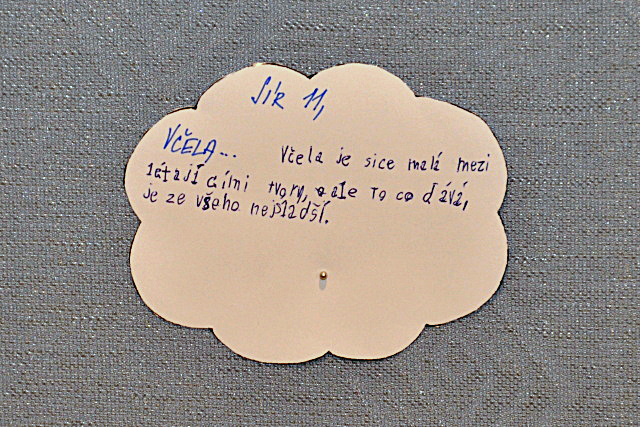 SIR 11,
VČELA... Včela je sice malá mezi
létajícími tvory, ale to co dává,
je ze všeho nejsladší.